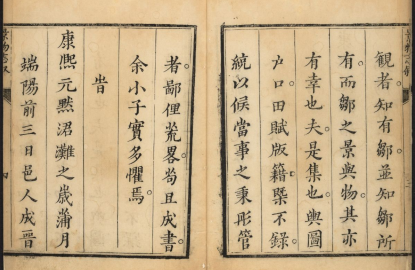 觀者知有鄒並知鄒所
有而鄒之景與物其亦
有幸也夫是集也輿圖
戶口田賦版籍槩不錄
統以候當事之秉彤管
者鄙俚荒畧苟且成書
余小子實多懼焉
旹
康熙元黓涒灘之歲蒲月
端陽前三日邑人成晋